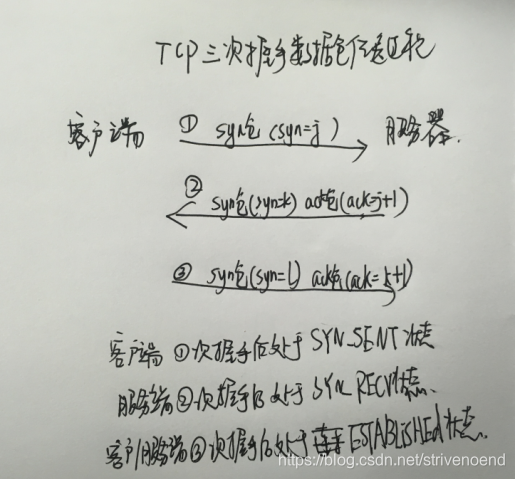 TCP三次握手数据包传送过程
客户端 ① syn包(syn=j) 服务器
② syn包(syn=k) ack包(ack=j+1)
③ syn包(syn=l) ack包(ack=k+1)
客户端①次握手后处于SYN_SENT状态
服务端②次握手后处于SYN_RECV状态.
客户/服务端③次握手后处于ESTABLISHED状态.
https://blog.csdn.net/strivenoend